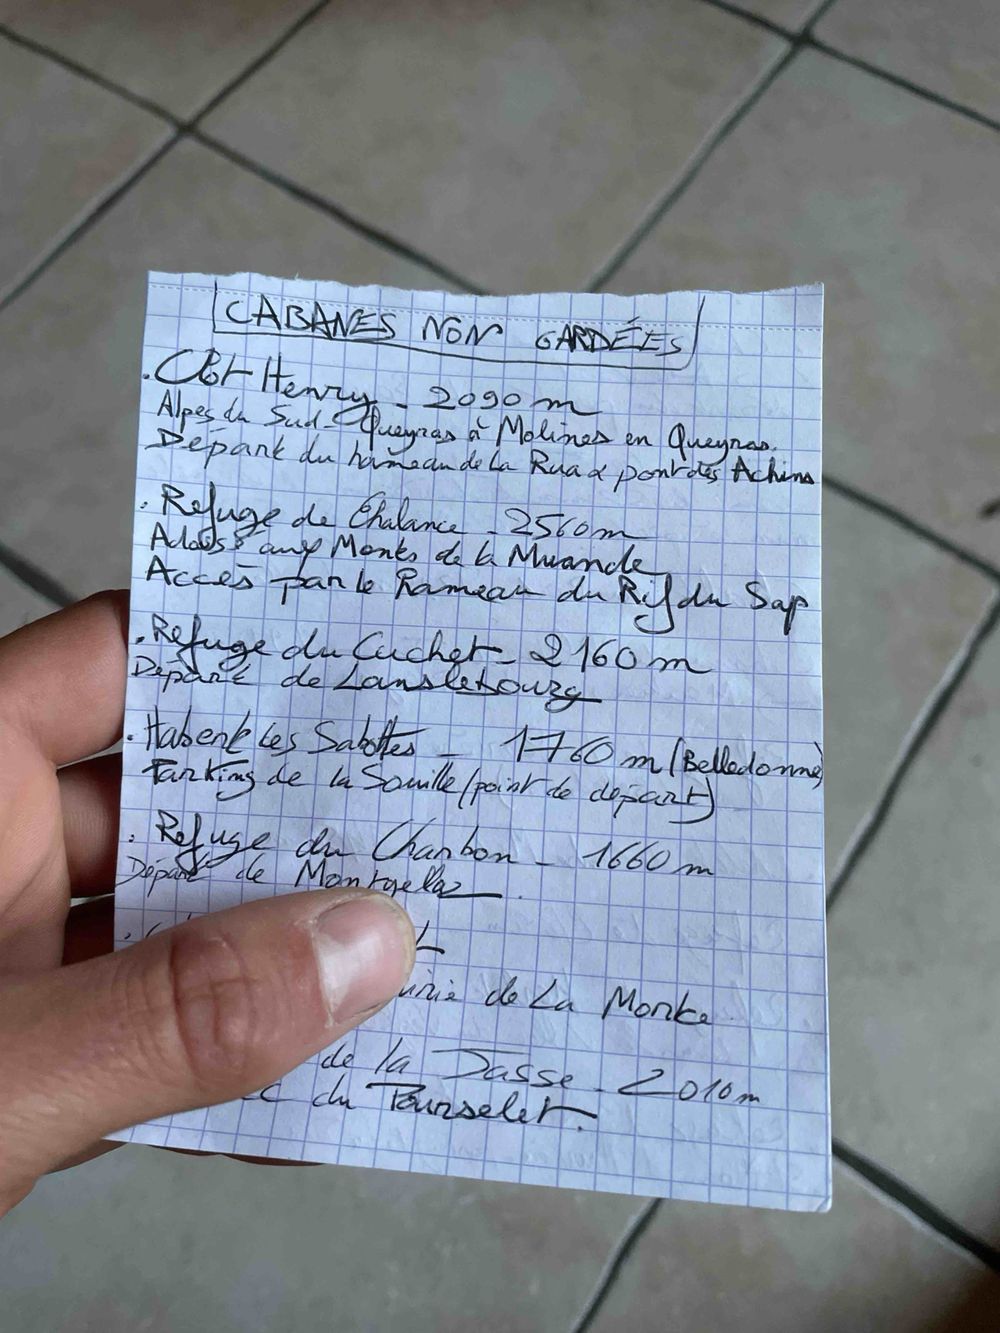 CABANES NON GARDÉES
. Clot Henry - 2090 m
Alpes du Sud - Queyras à Molines en Queyras.
Départ du hameau de la Rua & pont des Achins
. Refuge de Chalance - 2560m
Adossé aux Monts de la Muande
Accès par le Rameau du Rif du Sap
. Refuge du Cuchet - 2160 m
Départ de Lanslebourg
. Habert Les Sabottes - 1760 m (Belledonne)
Parking de la Souille (point de départ)
. Refuge du Charbon - 1660 m
Départ de Montgellaz.
de La Monta
de la Jasse - 2010m
du Pourselet.